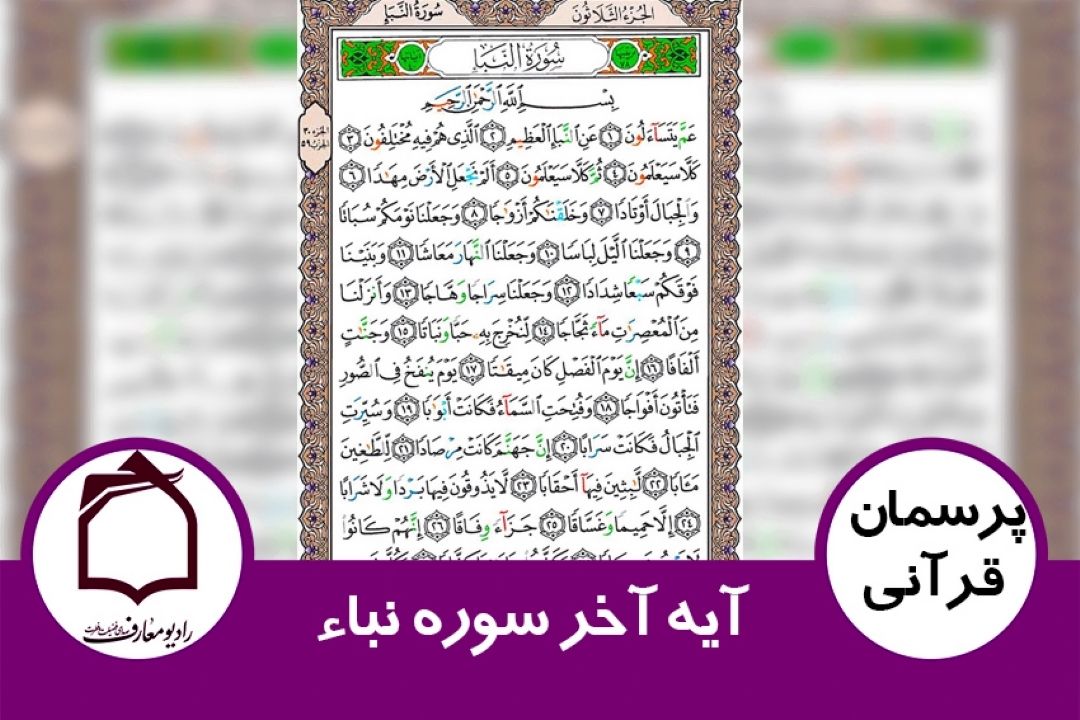 الجزء الثلاثون
سورة النبإ
سُورَةُ النَّبَإِ
بِسْمِ اللَّهِ الرَّحْمَٰنِ الرَّحِيمِ
عَمَّ يَتَسَآءَلُونَ ١ عَنِ النَّبَإِ الْعَظِيمِ ٢ الَّذِى هُمْ فِيهِ مُخْتَلِفُونَ ٣
كَلَّا سَيَعْلَمُونَ ٤ ثُمَّ كَلَّا سَيَعْلَمُونَ ٥ أَلَمْ نَجْعَلِ الْأَرْضَ مِهَٰدًا ٦
وَالْجِبَالَ أَوْتَادًا ٧ وَخَلَقْنَٰكُمْ أَزْوَٰجًا ٨ وَجَعَلْنَا نَوْمَكُمْ سُبَاتًا
٩ وَجَعَلْنَا الَّيْلَ لِبَاسًا ١٠ وَجَعَلْنَا النَّهَارَ مَعَاشًا ١١ وَبَنَيْنَا
فَوْقَكُمْ سَبْعًا شِدَادًا ١٢ وَجَعَلْنَا سِرَاجًا وَهَّاجًا ١٣ وَأَنزَلْنَا
مِنَ الْمُعْصِرَٰتِ مَآءً ثَجَّاجًا ١٤ لِّنُخْرِجَ بِهِۦ حَبًّا وَنَبَاتًا ١٥ وَجَنَّٰتٍ
أَلْفَافًا ١٦ إِنَّ يَوْمَ الْفَصْلِ كَانَ مِيقَٰتًا ١٧ يَوْمَ يُنفَخُ فِى الصُّورِ
فَتَأْتُونَ أَفْوَاجًا ١٨ وَفُتِحَتِ السَّمَآءُ فَكَانَتْ أَبْوَٰبًا ١٩ وَسُيِّرَتِ
الْجِبَالُ فَكَانَتْ سَرَابًا ٢٠ إِنَّ جَهَنَّمَ كَانَتْ مِرْصَادًا ٢١ لِّلطَّٰغِينَ
مَـَٔابًا ٢٢ لَّٰبِثِينَ فِيهَآ أَحْقَابًا ٢٣ لَّا يَذُوقُونَ فِيهَا بَرْدًا وَلَا شَرَابًا
٢٤ إِلَّا حَمِيمًا وَغَسَّاقًا ٢٥ جَزَآءً وِفَاقًا ٢٦ إِنَّهُمْ كَانُوا
الجزء ٣٠
الحزب ٥٩
پرسمان
قرآنی
آیه آخر سوره نباء
رادیو معارف